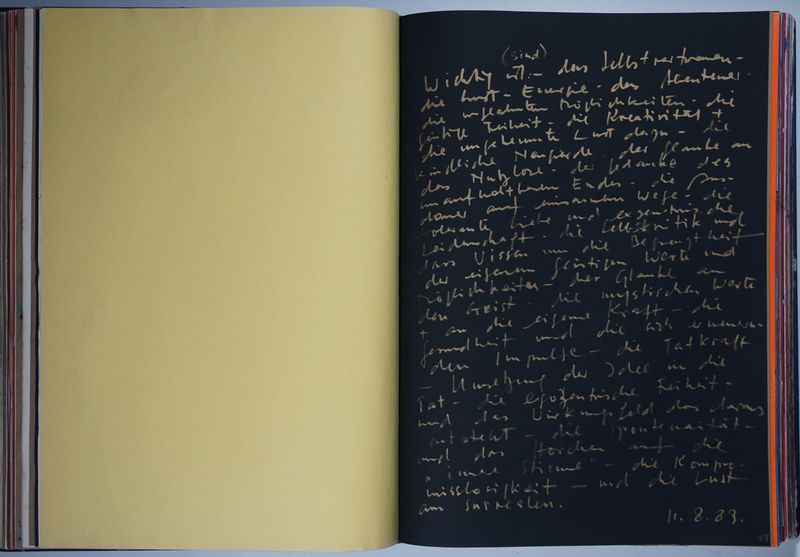 (sind)
Wichtig ist - das Selbstvertrauen -
die Lust - Energie - das Abenteuer
die ungeahnten Möglichkeiten - die
geistige Freiheit - die Kreativität +
die ungehemmte Lust dazu - die
kindliche Neugierde - der Glaube an
das Nutzlose - der Gedanke des
unaufhaltbaren Endes - die Aus-
dauer auf einsamem Wege - die
tolerante Liebe und exzentrische
Leidenschaft - die Selbstkritik und
das Wissen um die Begrenztheit
der eigenen geistigen Werte und
Möglichkeiten - der Glaube an
den Geist - die mystischen Werte
+ an die eigene Kraft - die
Gesundheit und die sich erneuern-
den Impulse - die Tatkraft
- Umsetzung der Idee in die
Tat - die egozentrische Freiheit -
und das Wirkungsfeld das daraus
entsteht - die Spontanaität -
und das Horchen auf die
"innere Stimme" - die Kompro-
misslosigkeit - und die Lust
am surrealen.
11. 8. 83.